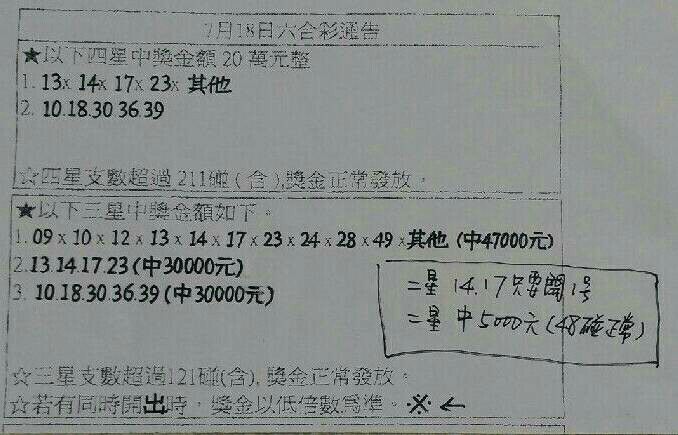 7月18日六合彩通告
★以下四星中獎金額20萬元整
1. 13x 14x 17x 23x 其他
2. 10.18.30 36.39
☆四星支數超過211碰(含),獎金正常發放。
★以下三星中獎金額如下。
1. 09 x 10 x 12 x 13 x 14 x 17 x 23 x 24 x 28 x 49 x其他 (中47000元)
2.13.14.17.23 (中30000元)
3. 10.18.30.36.39 (中30000元)
二星 14.17只要開1号
二星 中5000元(48碰正常)
☆三星支數超過121碰(含), 獎金正常發放。
☆若有同時開出時，獎金以低倍數為準。※←